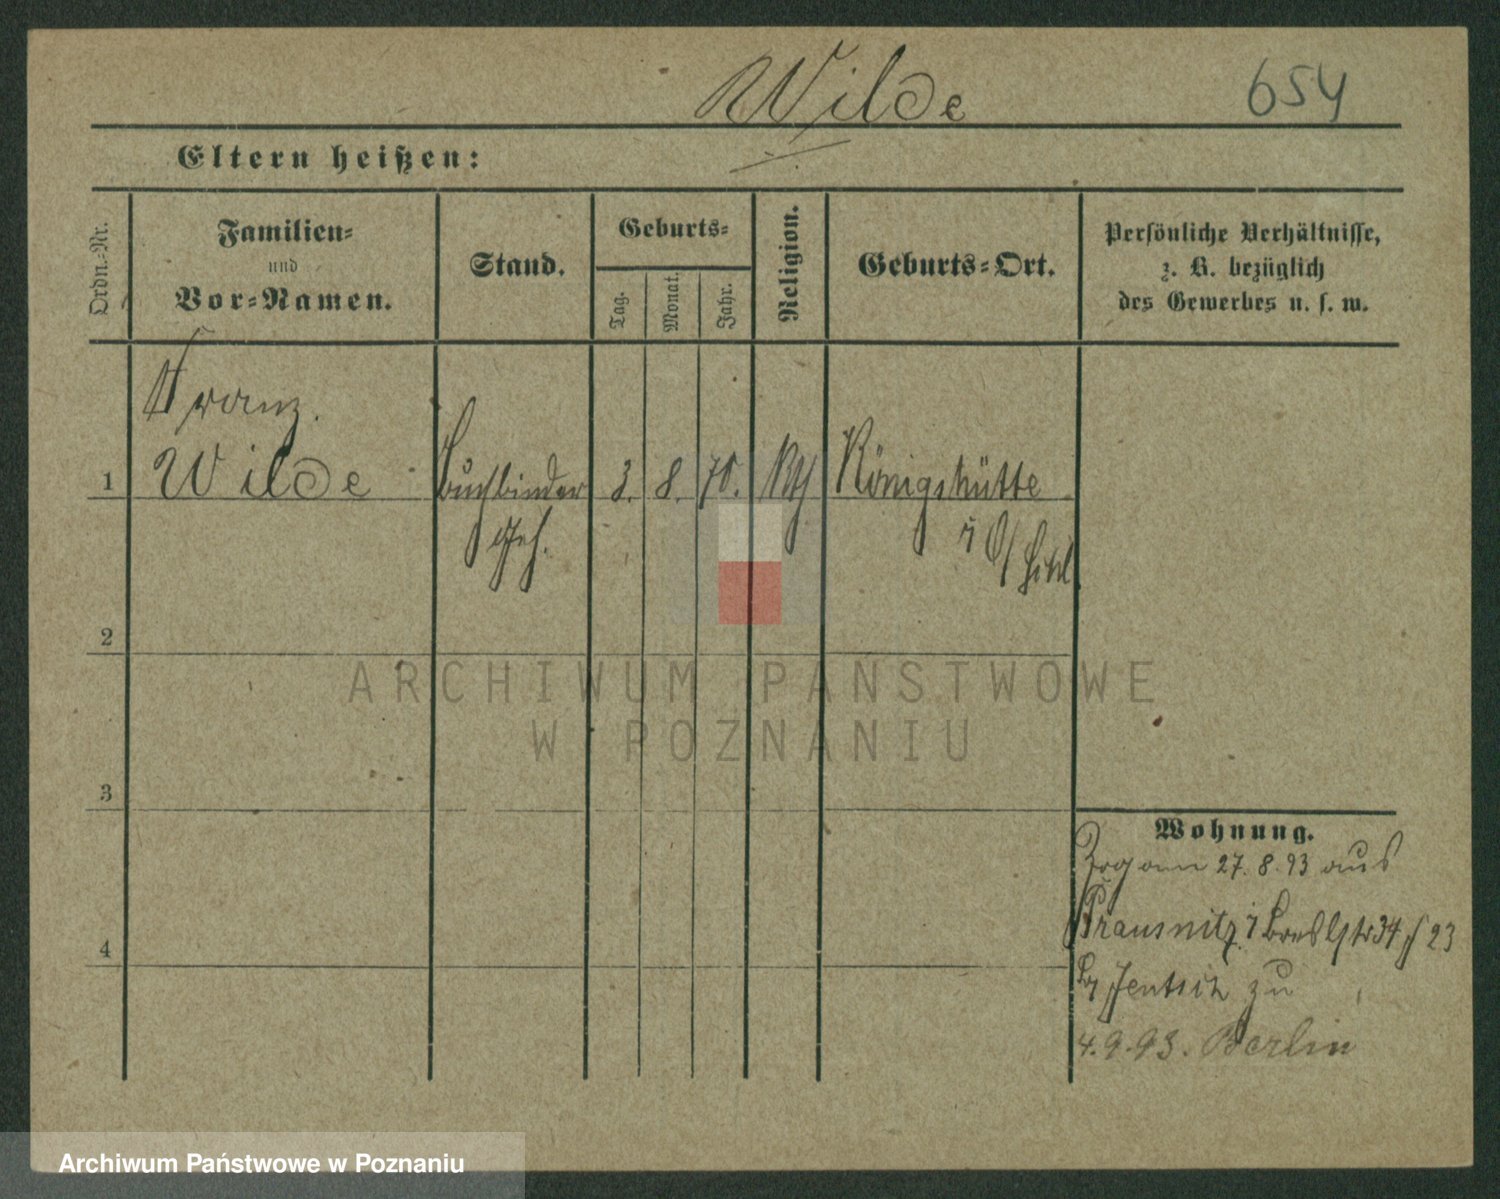 Wilde
654
Eltern heißen:
Ordn.-Nr.
Familien-
und
Vor-Namen.
Stand.
Geburts-
Tag.
Monat.
Jahr.
Religion.
Geburts-Ort.
Persönliche Verhältnisse,
z. B. bezüglich
des Gewerbes u. s. w.
Franz.
1 Wilde Buchbinder 3. 8. 70. Kth Königshütte
Geh.
i O/Schl
2
3
4
Wohnung.
Zog am 27. 8. 93 aus
Prausnitz i Bresl 34 23
by Jentsch zu
4. 9. 93. Berlin
ARCHIWUM PAŃSTWOWE
W POZNANIU
Archiwum Państwowe w Poznaniu